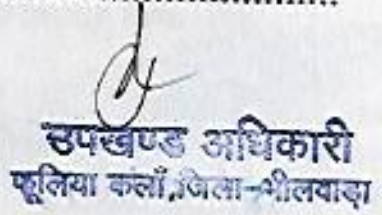 उपखण्ड अधिकारी
फूलिया कलाँ,जिला-भीलवाड़ा